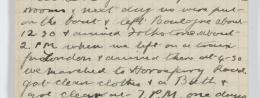 rooms & next day we were put
on the boat & left Boulogne about
12.30 & arrived Folkstone about
2. P.M. when we left on a train
for London & arrived there at 4-30
we marched to Horseferry Road
got clean clothes & a Bath &
got clear at 7 P.M. one day